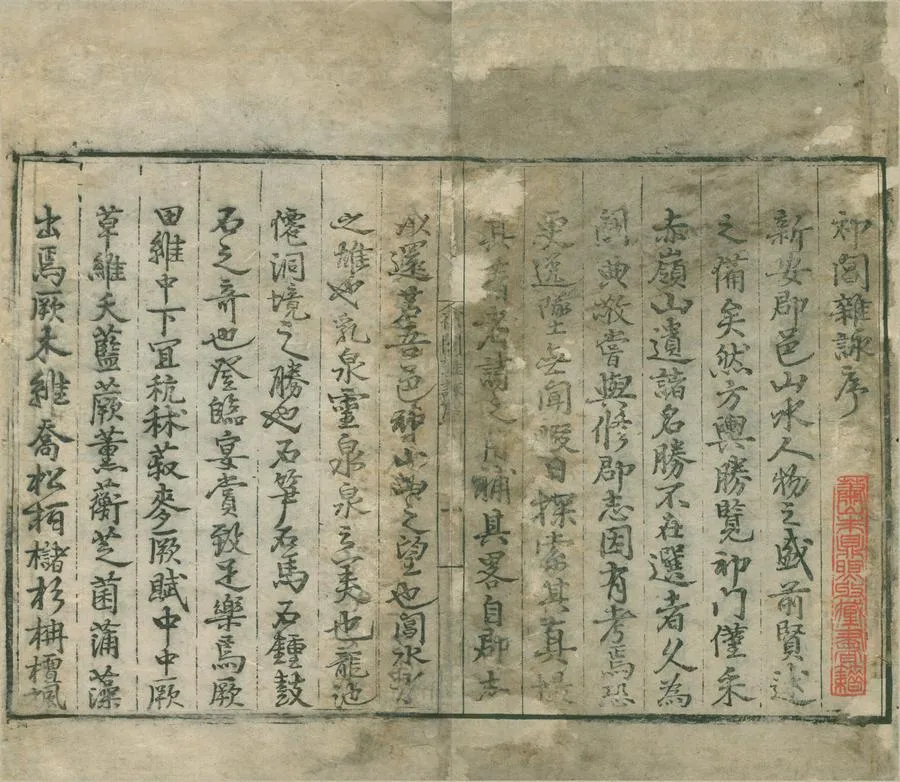 祁閶雜詠序
新安郡邑山水人物之盛前賢述
之備矣然方輿勝覽祁門僅采
赤嶺山遺諸名勝不在選者久為
闕典敬嘗與修郡志因有考焉恐
更逸墜乏聞暇日探索其真
其耆老詩之用補其畧自郡志
以還若吾邑 山 之望也閶水
之雄也乳泉靈泉泉之美也龍池
僊洞境之勝也石筍石馬石鍾鼓
石之奇也登臨宴賞致足樂焉厥
田維中下宜秔秫菽麥厥賦中中厥
草維夭藍蕨薰蘅芝菌蒲藻
出焉厥木維喬松栢櫧杉枏檀楓